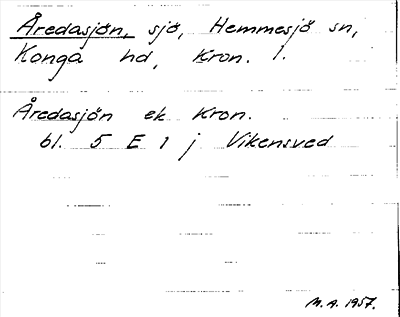 Åredasjön, sjö, Hemmesjö sn,
Konga hd, Kron. l.
Åredasjön ek Kron.
bl. 5 E 1 j Vikensved
M.A. 1957.